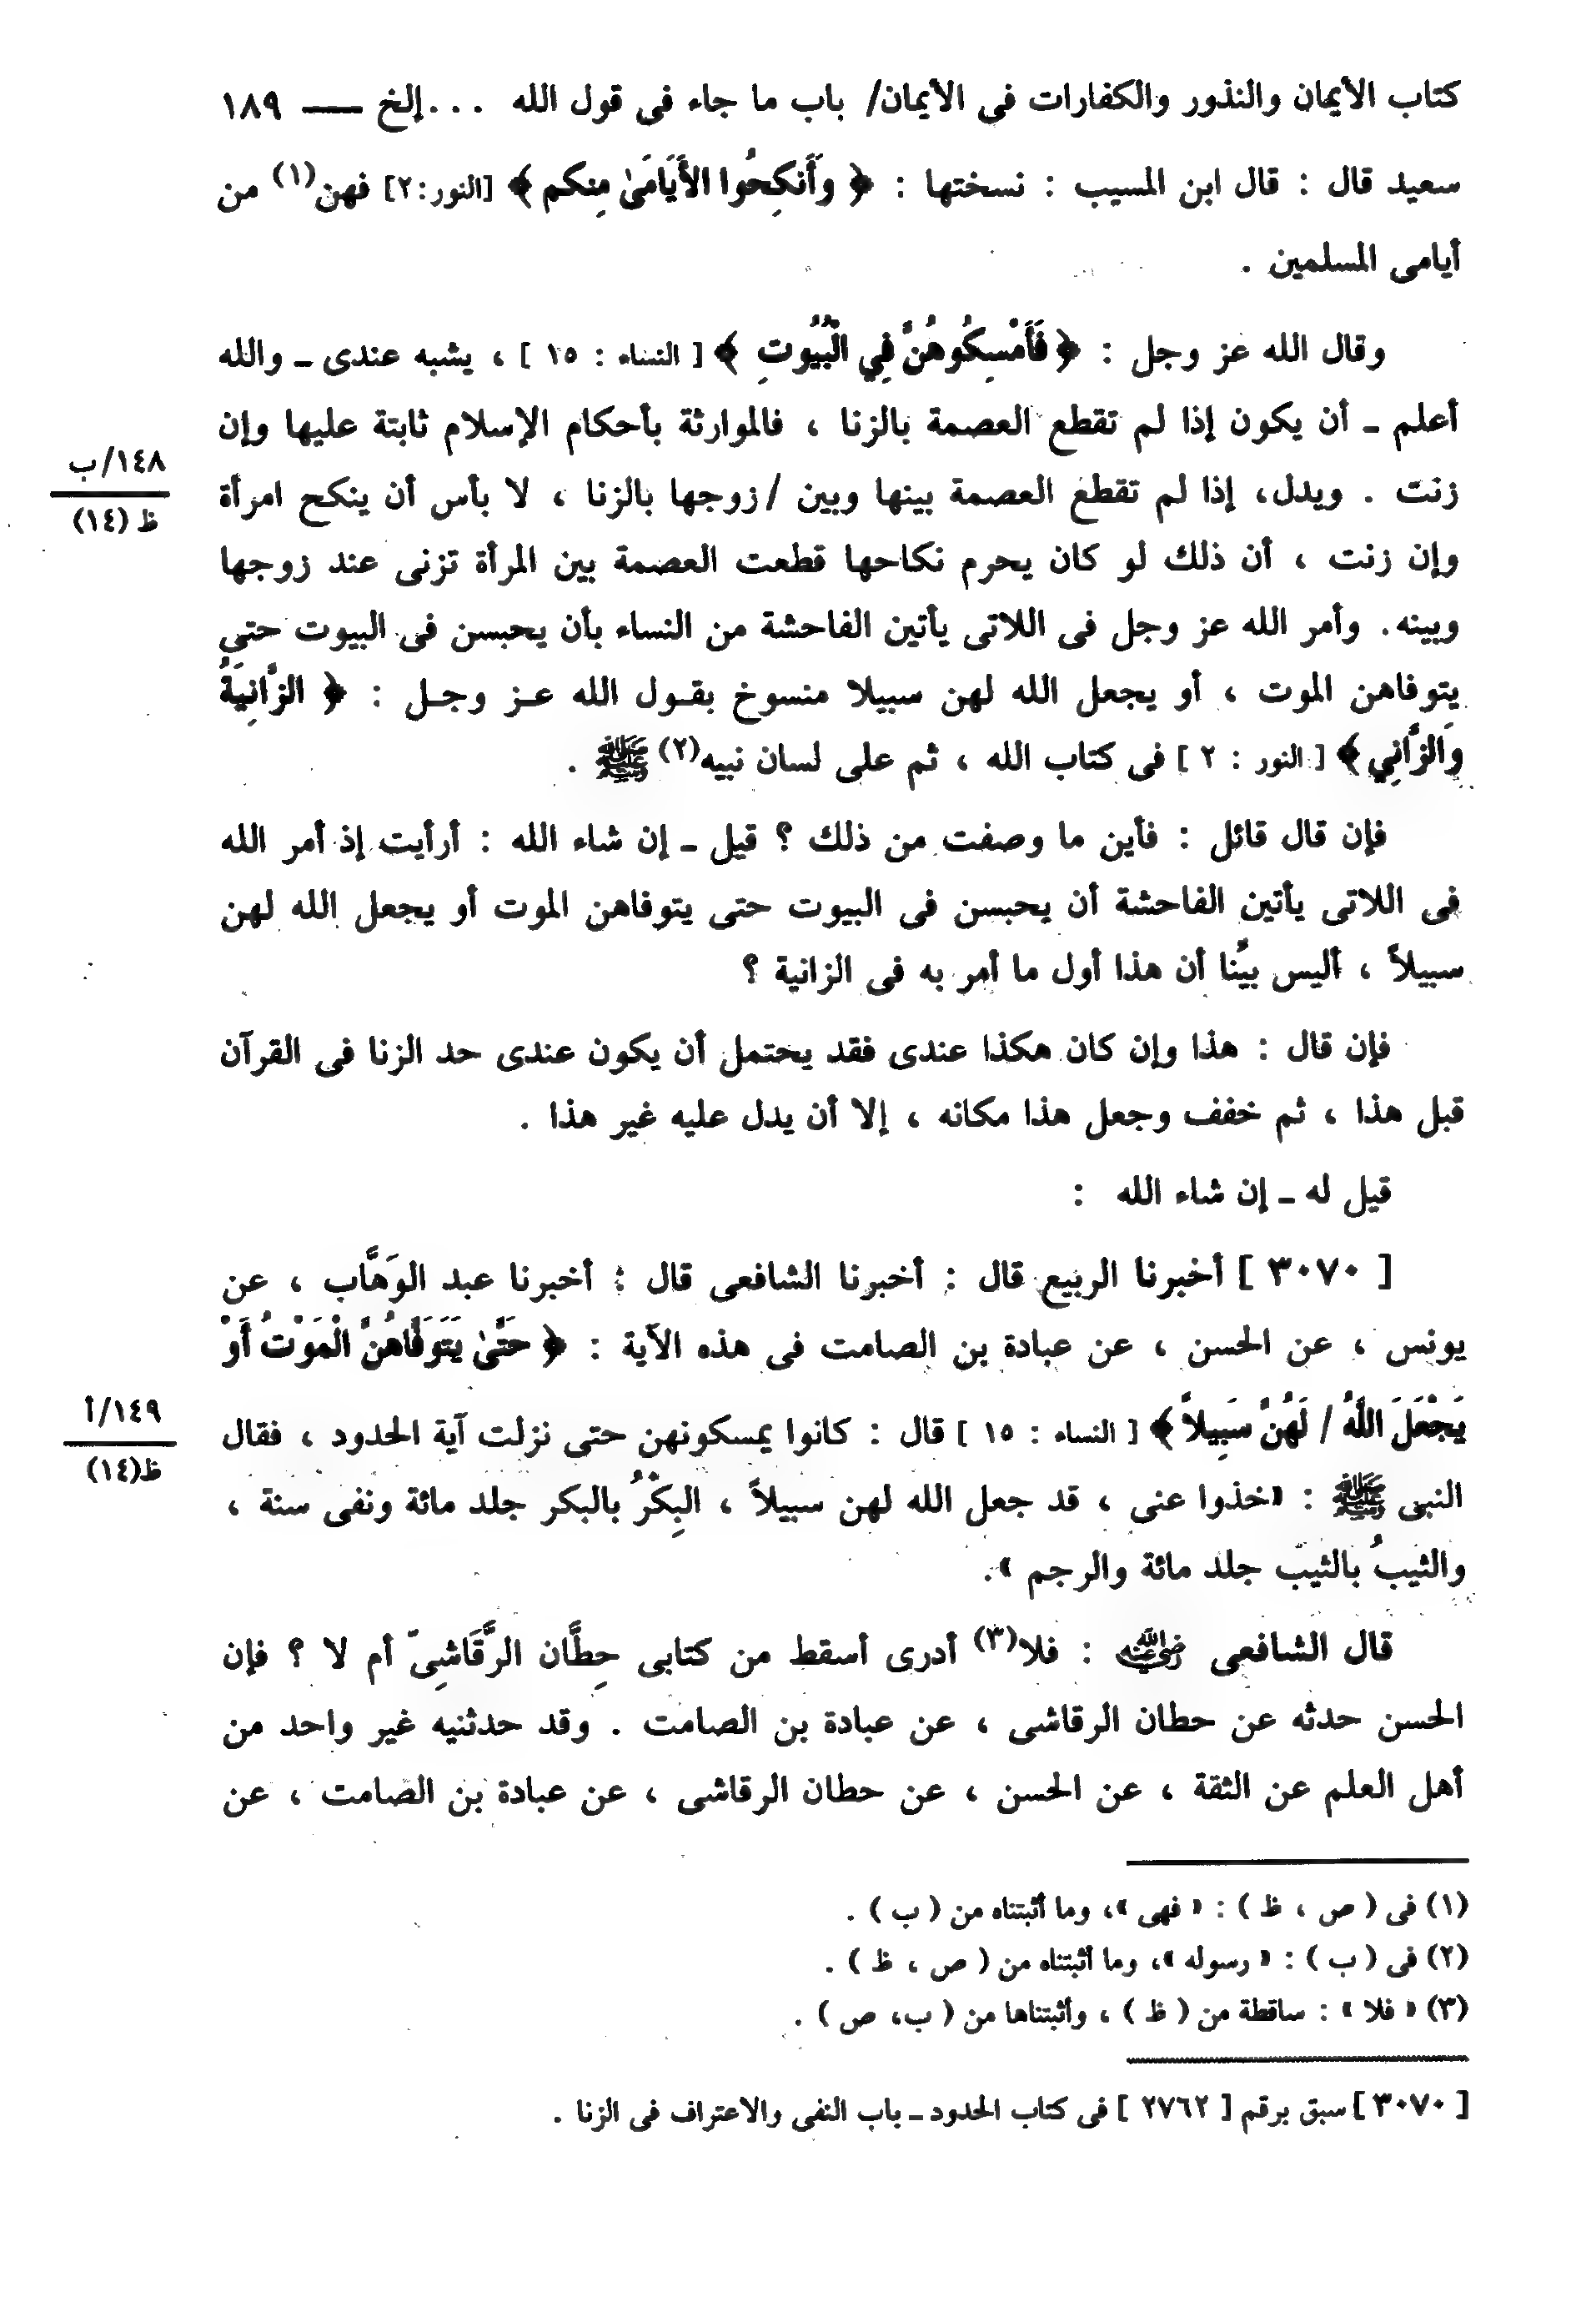 كتاب الأيمان والنذور والكفارات فى الأيمان/ باب ما جاء فى قول الله ...إلخ ـــــ ١٨٩
سعيد قال : قال ابن المسيب : نسختها : ﴿ وَأَنكِحُوا الأَيَامَىٰ مِنكم ﴾ [النور:٢] فهن(١) من
أيامى المسلمين .
وقال الله عز وجل : ﴿ فَأَمْسِكُوهُنَّ فِي الْبُيُوتِ ﴾ [ النساء : ١٥ ] ، يشبه عندى ـ والله
أعلم ـ أن يكون إذا لم تقطع العصمة بالزنا ، فالموارثة بأحكام الإسلام ثابتة عليها وإن
١٤٨/ب
زنت . ويدل، إذا لم تقطع العصمة بينها وبين /زوجها بالزنا ، لا بأس أن ينكح امرأة
ظ (١٤)
وإن زنت ، أن ذلك لو كان يحرم نكاحها قطعت العصمة بين المرأة تزنى عند زوجها
وبينه. وأمر الله عز وجل فى اللاتى يأتين الفاحشة من النساء بأن يحبسن فى البيوت حتى
يتوفاهن الموت ، أو يجعل الله لهن سبيلا منسوخ بقـول الله عـز وجـل : ﴿ الزَّانِيَةُ
وَالزَّانِي ﴾ [ النور : ٢ ] فى كتاب الله ، ثم على لسان نبيه(٢) ﷺ .
فإن قال قائل : فأين ما وصفت من ذلك ؟ قيل ـ إن شاء الله : أرأيت إذ أمر الله
فى اللاتى يأتين الفاحشة أن يحبسن فى البيوت حتى يتوفاهن الموت أو يجعل الله لهن
سبيلاً ، أليس بيِّنا أن هذا أول ما أمر به فى الزانية ؟
فإن قال : هذا وإن كان هكذا عندى فقد يحتمل أن يكون عندى حد الزنا فى القرآن
قبل هذا ، ثم خفف وجعل هذا مكانه ، إلا أن يدل عليه غير هذا .
قيل له ـ إن شاء الله :
[ ٣٠٧٠ ] أخبرنا الربيع قال : أخبرنا الشافعى قال : أخبرنا عبد الوَهَّاب ، عن
يونس ، عن الحسن ، عن عبادة بن الصامت فى هذه الآية : ﴿ حَتَّىٰ يَتَوَفَّاهُنَّ الْمَوْتُ أَوْ
١٤٩/أ
يَجْعَلَ اللَّهُ / لَهُنَّ سَبِيلاً ﴾ [ النساء : ١٥ ] قال : كانوا يمسكونهن حتى نزلت آية الحدود ، فقال
ظ(١٤)
النبى ﷺ : «خذوا عنى ، قد جعل الله لهن سبيلاً ، البِكْرُ بالبكر جلد مائة ونفى سنة ،
والثيبُ بالثيب جلد مائة والرجم ».
قال الشافعى رضي الله عنه : فلا(٣) أدرى أسقط من كتابى حِطَّان الرَّقَاشِىّ أم لا ؟ فإن
الحسن حدثه عن حطان الرقاشى ، عن عبادة بن الصامت . وقد حدثنيه غير واحد من
أهل العلم عن الثقة ، عن الحسن ، عن حطان الرقاشى ، عن عبادة بن الصامت ، عن
(١) فى ( ص ، ظ ) : « فهى »، وما أثبتناه من ( ب ) .
(٢) فى ( ب ) : « رسوله »، وما أثبتناه من ( ص ، ظ ) .
(٣) « فلا » : ساقطة من ( ظ ) ، وأثبتناها من ( ب، ص ) .
[ ٣٠٧٠ ] سبق برقم [ ٢٧٦٢ ] فى كتاب الحدود ـ باب النفى والاعتراف فى الزنا .